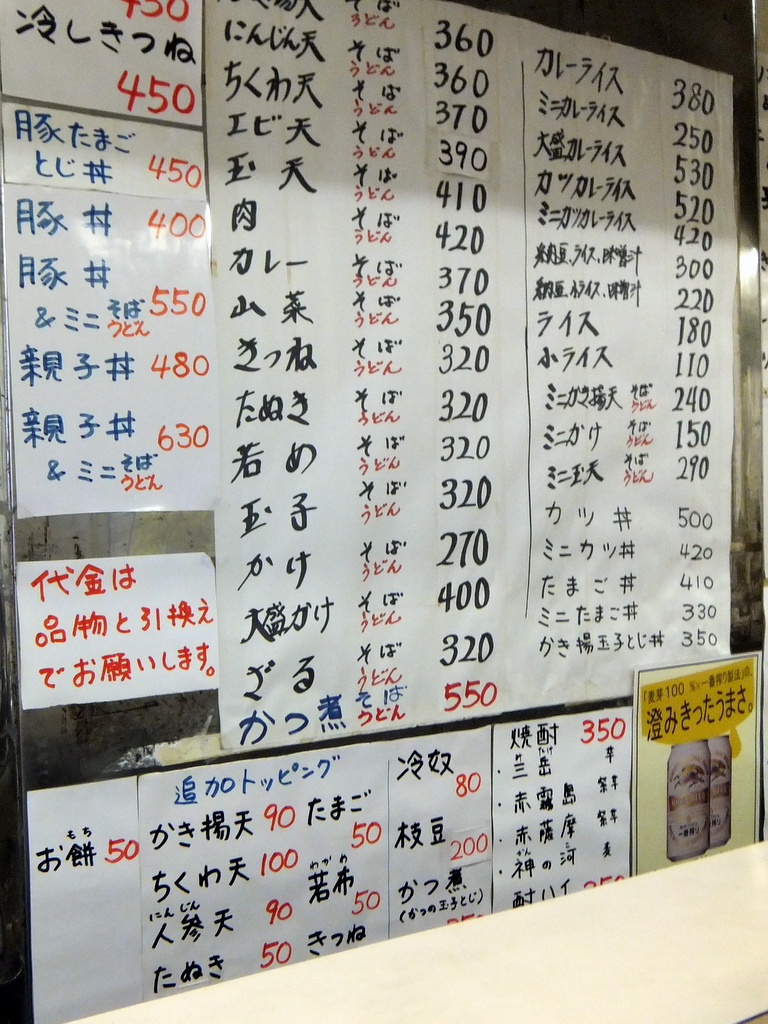 450
冷しきつね
450
豚たまご
とじ丼 450
豚丼 400
豚丼
&ミニそばうどん 550
親子丼 480
親子丼
&ミニそばうどん 630
代金は
品物と引換え
でお願いします。
揚天 そば うどん 360
にんじん天 そば うどん 360
ちくわ天 そば うどん 370
エビ天 そば うどん 390
玉天 そば うどん 410
肉 そば うどん 420
カレー そば うどん 370
山菜 そば うどん 350
きつね そば うどん 320
たぬき そば うどん 320
若め そば うどん 320
玉子 そば うどん 320
かけ そば うどん 270
大盛かけ そば うどん 400
ざる そば うどん 320
かつ煮 そば うどん 550
カレーライス 380
ミニカレーライス 250
大盛カレーライス 530
カツカレーライス 520
ミニカツカレーライス 420
納豆、ライス、味噌汁 300
納豆、小ライス、味噌汁 220
ライス 180
小ライス 110
ミニかき揚天 そば うどん 240
ミニかけ そば うどん 150
ミニ玉天 そば うどん 290
カツ丼 500
ミニカツ丼 420
たまご丼 410
ミニたまご丼 330
かき揚玉子とじ丼 350
お餅 もち 50
追加トッピング
かき揚天 90
ちくわ天 100
人参天 にんじん 90
たぬき 50
たまご 50
若布 わかめ 50
きつね
冷奴 80
枝豆 200
かつ煮
(かつの玉子とじ)
焼酎 350
・三岳 みたけ 芋
・赤霧島 紫芋
・赤薩摩 紫芋
・神の河 かん 麦
酎ハイ 350
「麦芽100%×一番搾り製法」の、
澄みきったうまさ。
一番搾り